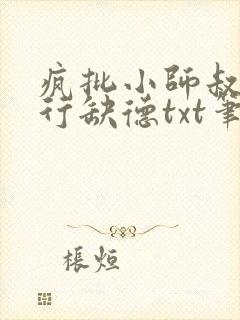 疯批小師叔
行缺德txt筆
棖烜